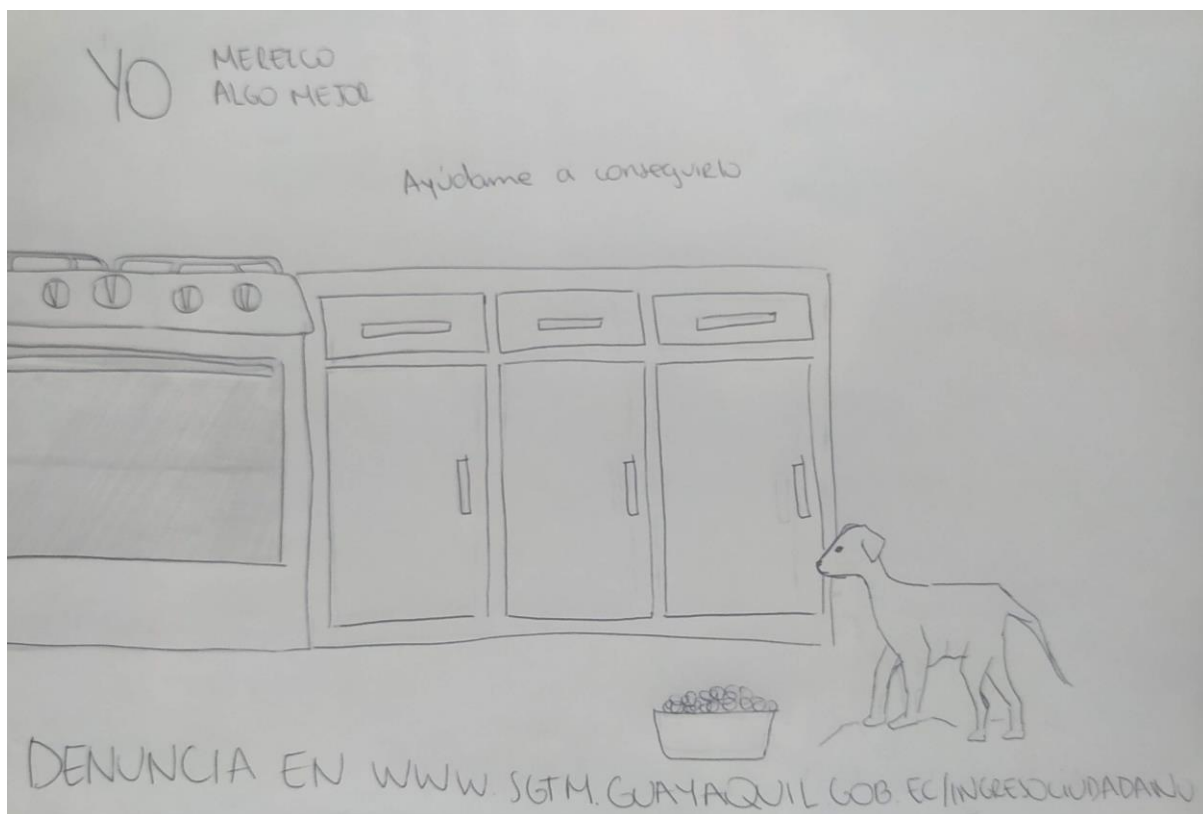 YO MEREZCO
ALGO MEJOR
Ayúdame a conseguirlo
DENUNCIA EN WWW.SGTM.GUAYAQUIL.GOB.EC/INGRESOCIUDADANO